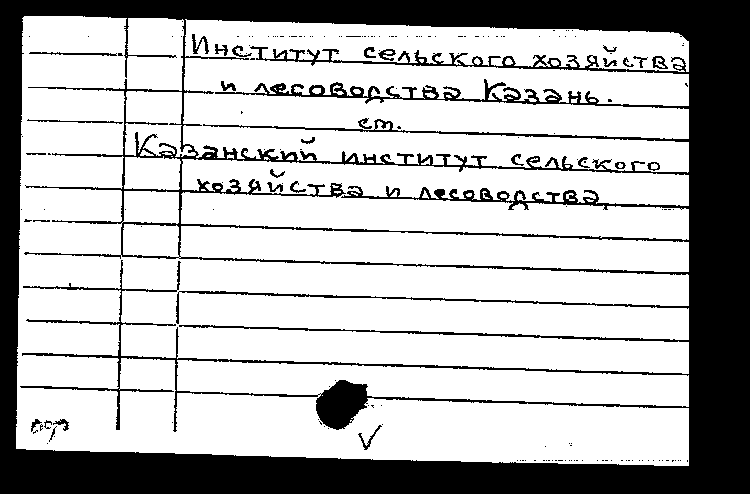 Институт сельского хозяйства
и лесоводства Казань.
см.
Казанский институт сельского
хозяйства и лесоводства.